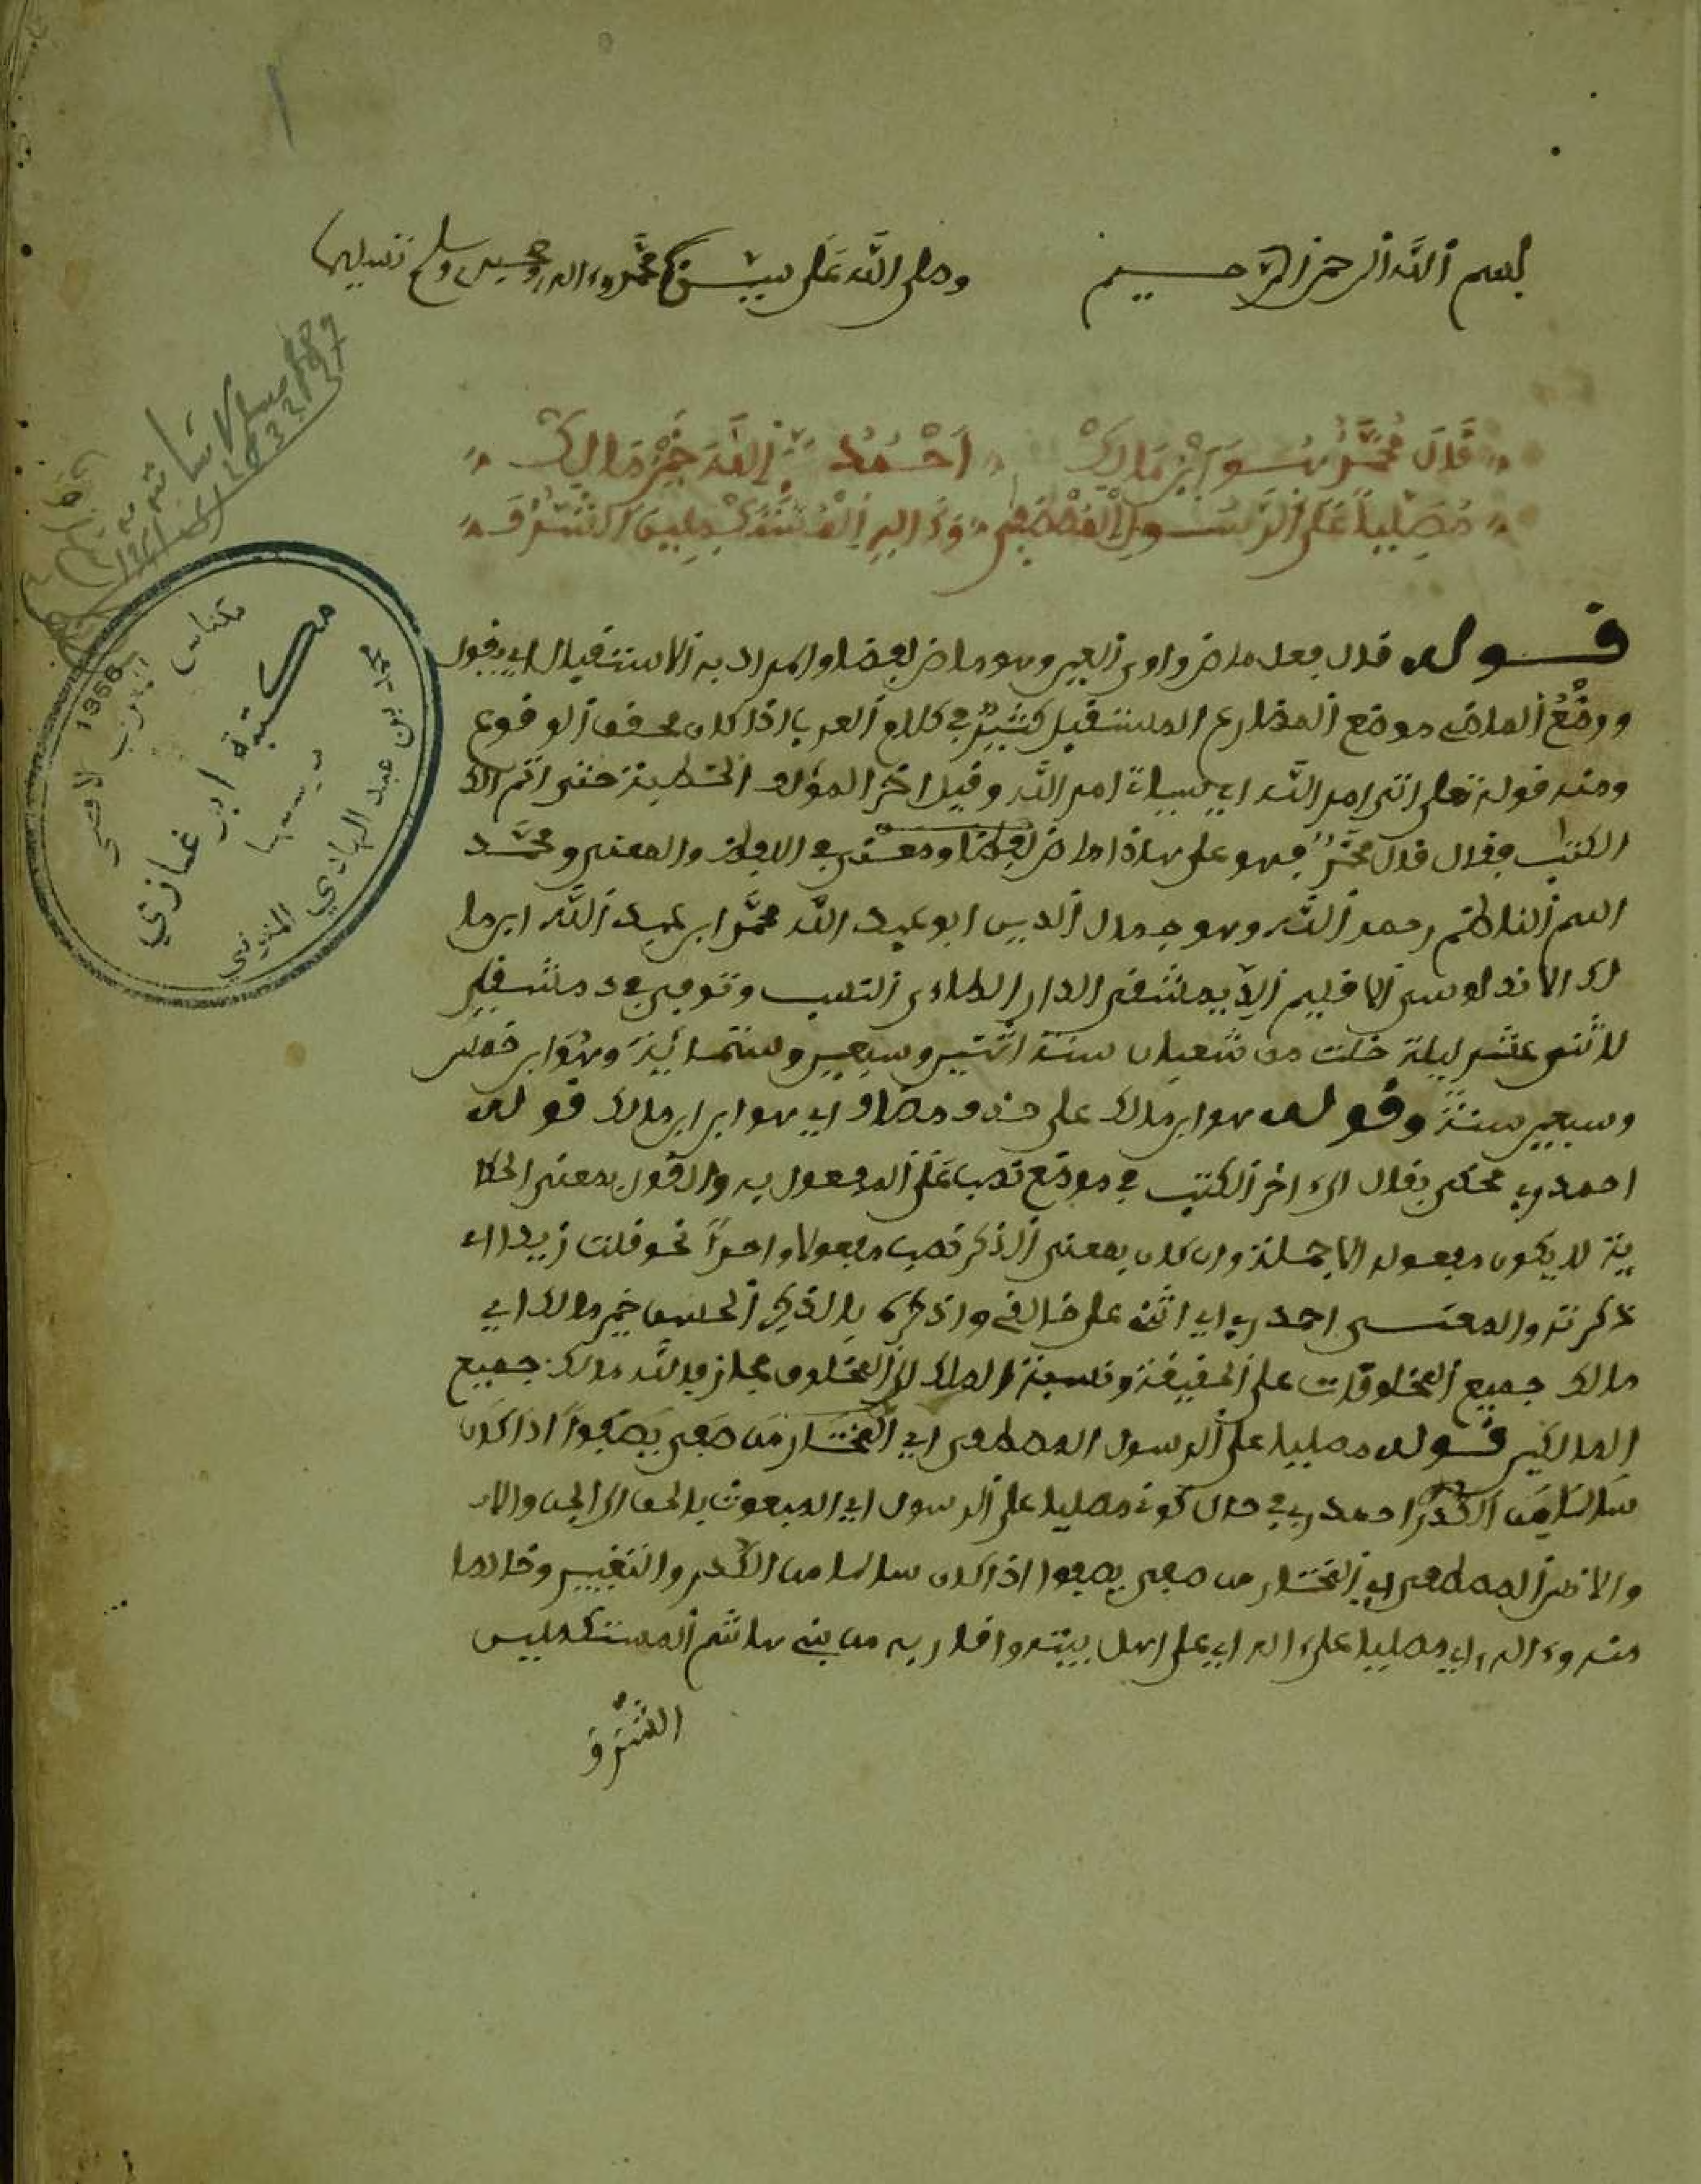 بسم الله الرحمن الرحيم وصلى الله على محمد وءاله وصحبه وسلم تسليما
قَالَ مُحَمَّدٌ هُوَ ابْنُ مَالِكْ أَحْمَدُ رَبِّي اللَّهَ خَيْرَ مَالِكْ
مُصَلِّيًا عَلَى الرَّسُولِ الْمُصْطَفَى وَءَالِهِ الْمُسْتَكْمِلِينَ الشَّرَفَا
قوله قال فعل ماض واوي العين وهو ماض لفظا والمراد به الاستقبال اي يقول
ووضع الماضي موضع المضارع المستقبل كثير في كلام العرب اذا كان محقق الوقوع
ومنه قوله تعلى اتى امر الله اي سياتي امر الله وقيل اخر المؤلف الخطبة حتى اتم
الكتب فقال قال محمد فهو على هاذا ماض لفظا ومعنى في اللفظ والمعنى ومحمد
اسم الناظم رحمه الله وهو جمال الدين ابو عبد الله محمد ابن عبد الله ابن ما
لك الاندلوسي الاقليم الدمشقي الدار الطاءي النسب وتوفي في دمشق
لاثنى عشر ليلة خلت من شعبان سنة اثنتين وسبعين وستمائية وهو ابن خمس
وسبعين سنة وقوله هو ابن مالك على حذف مضاف اي هو ابن ابن مالك قوله
احمد ربي محكي بقال الى اخر الكتب في موضع نصب على المفعول به والقول بمعنى الحكا
ية لا يكون مفعوله الا جملة وان كان بمعنى الذكر نصب مفعولا واحدا نحو قلت زيدا اي
ذكرته والمعنى احمد ربي اي اثني على خالقي واذكره بالذكر الحسن خير مالك اي
مالك جميع المخلوقات على الحقيقة ونسبة الملك الى المخلوق مجاز والله مالك جميع
المالكين قوله مصليا على الرسول المصطفى اي المختار من صفى يصفوا اذا كان
سالما من الكدر احمد ربي في حال كوني مصليا على الرسول اي المبعوث بالحق الى الجن والا
والانس المصطفى اي المختار من صفى يصفوا اذا كان سالما من الكدر والتغيير وخالصا
منه وءاله اي مصليا على ءاله اي على اهل بيته واقاربه من بني هاشم المستكملين
الشرف
مكتبة ابن غازي
لصاحبها
محمد بن عبد الهادي المنوني
مكناس
المغرب الاقصى
1356